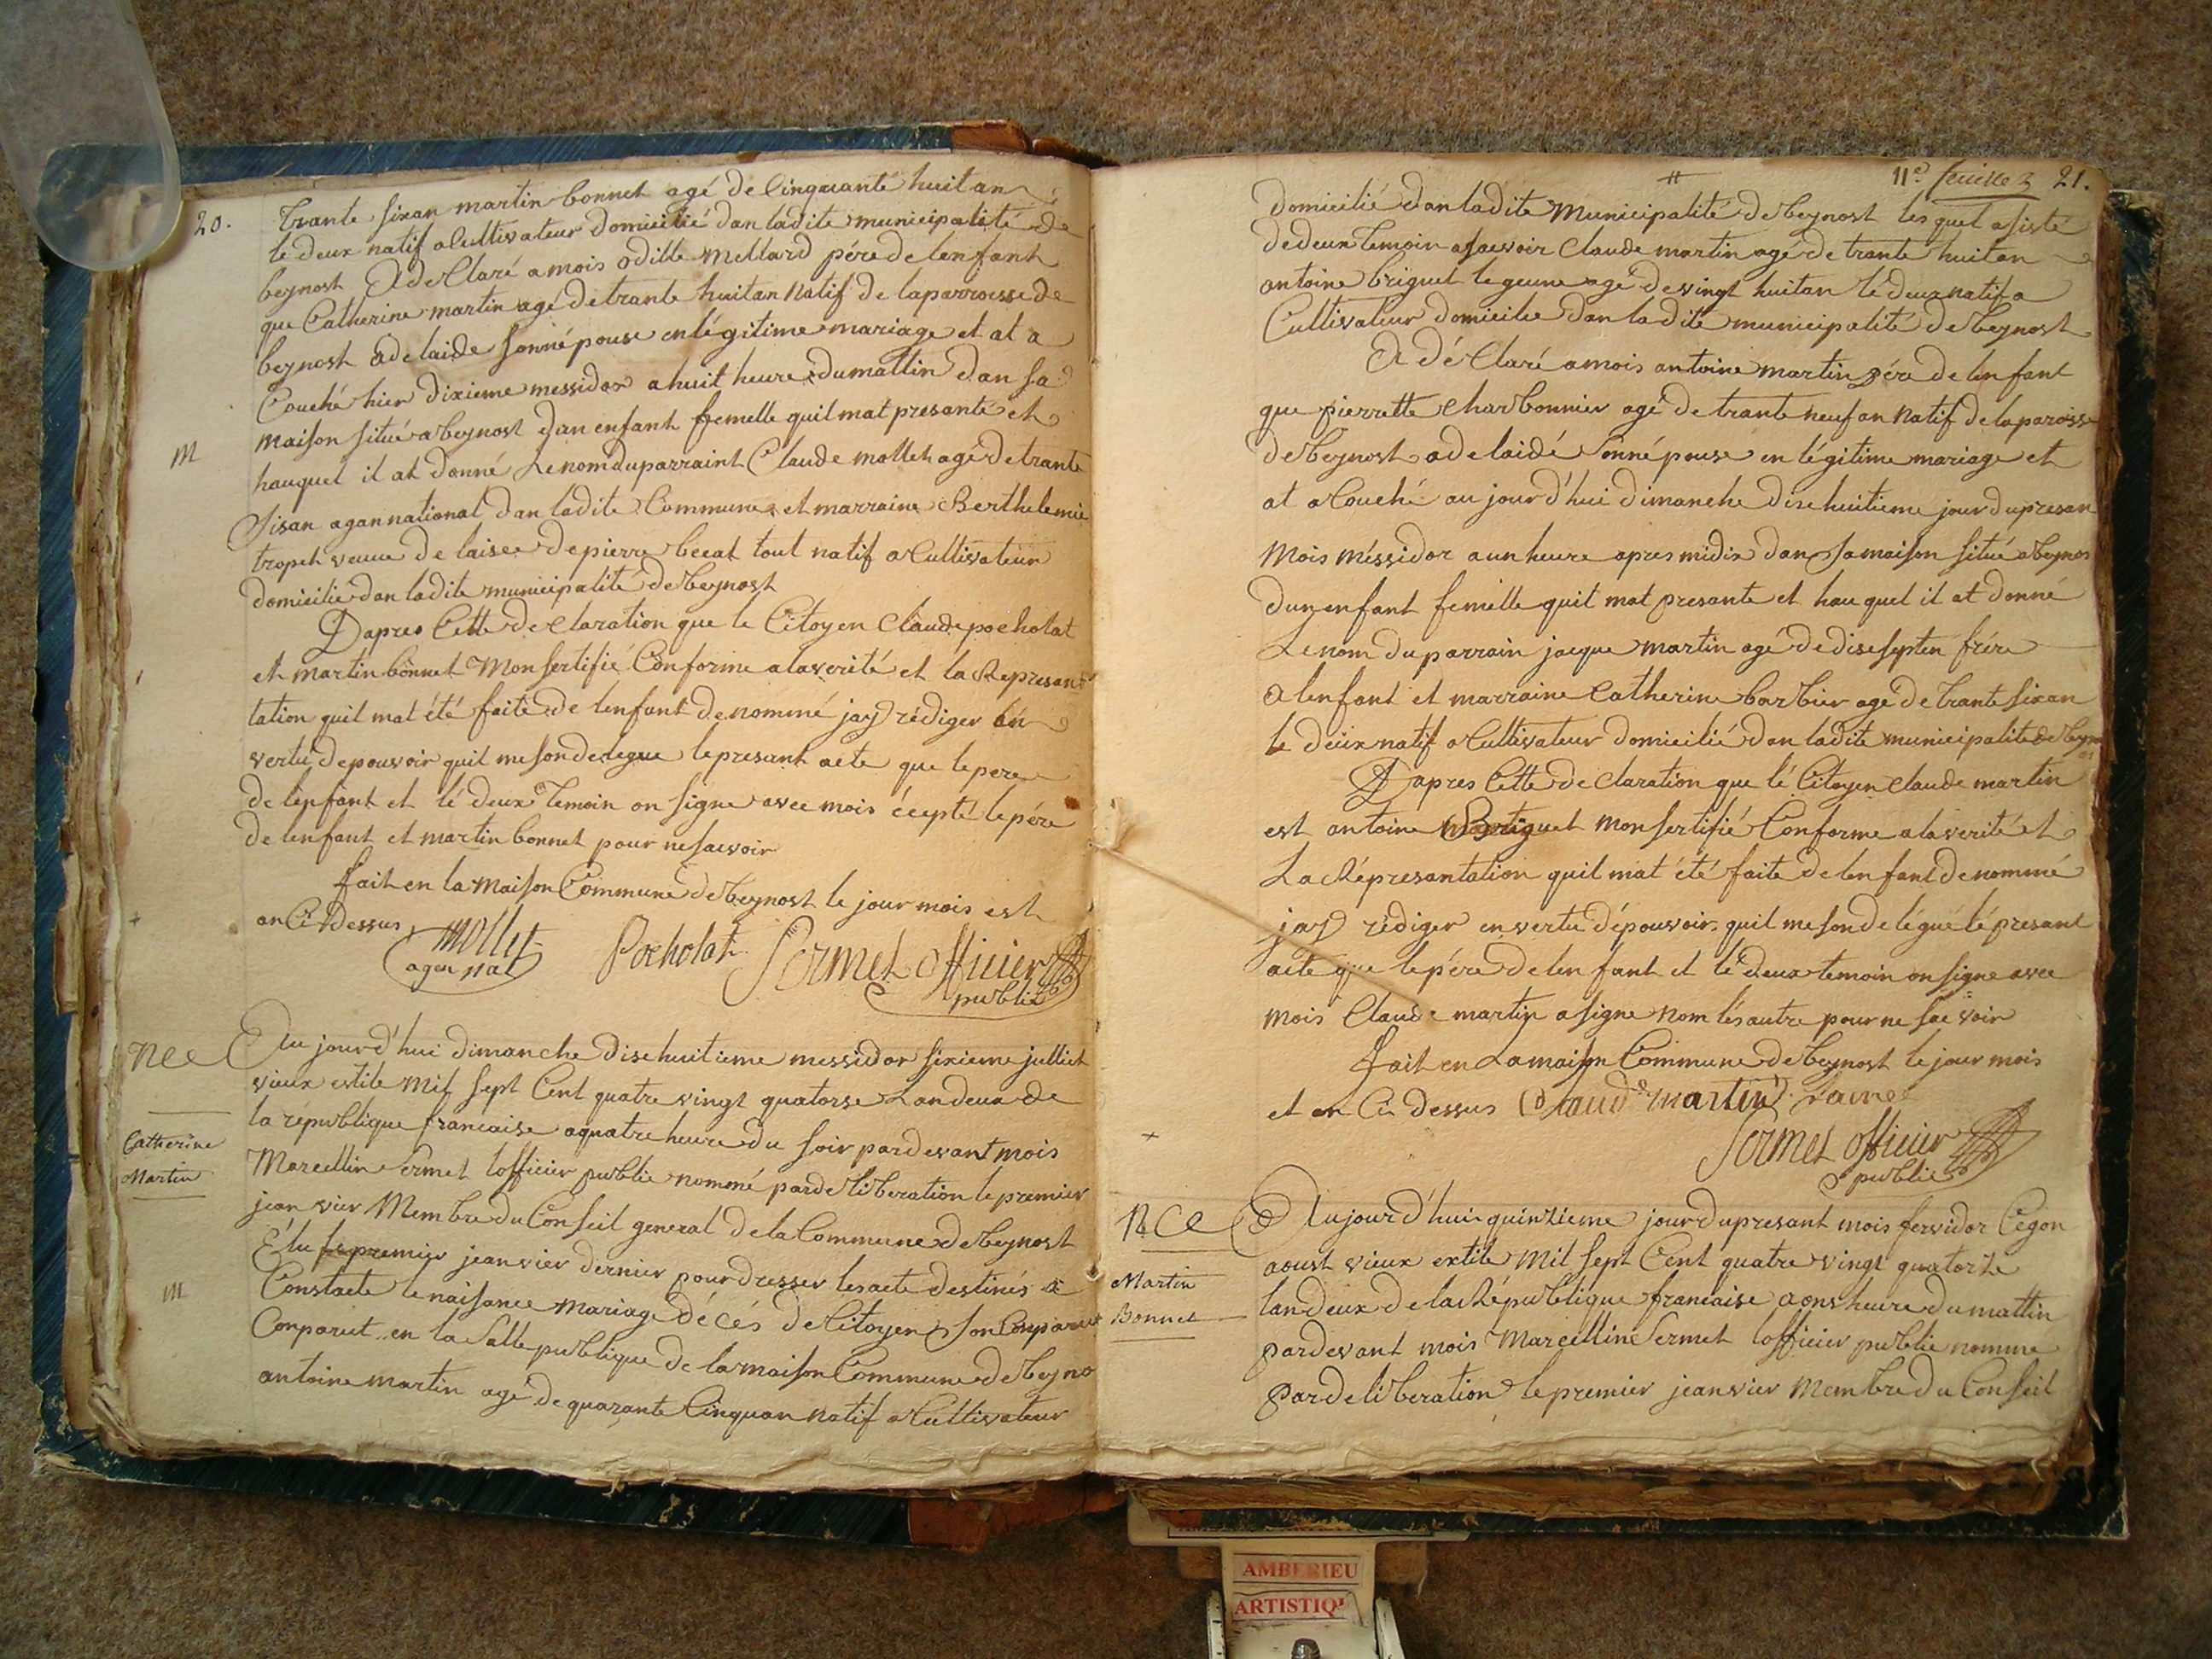 20.
trante sixan martin bonnet agé de Cinquante huit an
le deux natif a Cultivateur domicilié dan ladite municipalité de
beynost A de Claré a mois odille mellard pére de lenfant
que Catherine martin agé de trante huit an Natif de la parroisse de
beynost adelaide sonnépouse en légitime mariage et at a
Couché hier dixieme messidor a huit heure du mattin dan sa
maison situé a beynost dan enfant femelle quil mat presanté et
M
hauquel il at donné Le nom du parraint Claude mollet agé de trante
Sisan agan national dan ladite Commune et marraine Berthelemie
tropet veuve de laisee de pierre becat tout natif a Cultivateur
domicilie dan ladite municipalité de beynost
D'apres Cette de claration que le Citoyen Claude pocholat
et martin bonnet Mon sertifié Conforme a la verité et la Represan
tation quil mat été faite de lenfant denommé jay rédiger en
vertu de pouvoir quil me son delegue le presant acte que le pere
de lenfant et lé deux temoin on signe avec mois écepté le pére
de lenfant et martin bonnet pour ne saevoir
fait en la maison Commune de beynost le jour mois est
an Ci dessus
mollet
agen nat
Pocholat
Sermet officier
public
Née
Catherine
Martin
Au jourd'hui dimanche disehuitieme messidor sixieme julliet
vieux estile Mil sept Cent quatre vingt quatorse Landeux de
la république francaise a quatre heure du soir pardevant mois
Marcellin Sermet lofficier public nommé par deliberation le premier
jeanvier Membre du Conseil general de la Commune de beynost
Élu le premier jeanvier dernier pour dresser les acte destinés a
M
Constaete le naisance mariage décés de Citoyen son Conparut
Conparut en la Salle publique de la maison Commune de beyno
antoine martin agé de quarante Cinquan natif a Cultivateur
11e feuille 21.
domicilié dan ladite Municipalité de beynost les quel asisté
de deux temoin a saevoir Claude martin agé de trante huit an
antoine briguet le geune agé de vingt huitan lé deux natif a
Cultivateur domicilie dan ladite municipalité de beynost
A dé Claré a mois antoine martin pére de lenfant
que pierrette Charbonnier agé de trante neuf an Natif de la paroisse
de beynost adelaidé sonné pouse en légitime mariage et
at a Couché aujourd'hui dimanche disehuitieme jour du presan
Mois méssidor a un heure apres midix dan sa maison situé a beynos
dun enfant femelle quil mat presante et hauquel il at donné
Le nom du parrain jacque martin agé de diseseptan frére
a lenfant et marraine Catherine barbier agé de trante sixan
le deux natif a Cultivateur domicilié dan ladite municipalite de beyno
D'apres Cette de claration que lé Citoyen Claude martin
est antoine Briguet Mon sertifié Conforme a la verité et
La Répresantation quil mat été faite de lenfant denommé
jay rédiger en vertu dépouvoir quil me son délégué lé presant
acte que le pére de lenfant et lé deux temoin on signe avec
mois Claude martin a signe Nom lés autre pour ne saevoir
fait en La maison Commune de beynost le jour mois
et an Ci dessus Claude martin
Sermet officier
public
Née
Martin
Bonnet
Aujourd'hui quinzieme jour du presant mois fervidor Cegon
aoust vieux extile Mil sept Cent quatre vingt quatorze
landeux de la République francaise a ons heure du mattin
pardevant mois Marcelline Sermet lofficier public nomme
par deliberation le premier jeanvier Membre du Conseil
AMBERIEU
ARTISTIQ